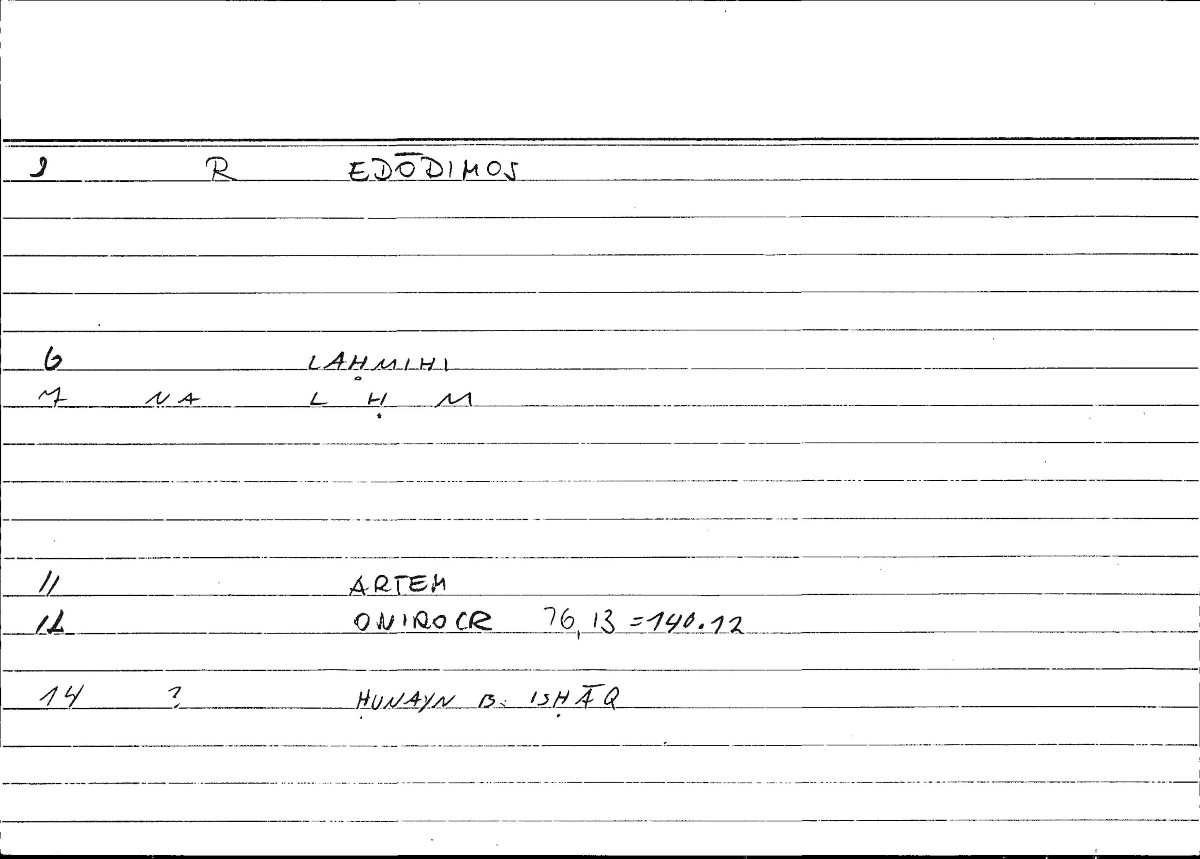 2 R EDŌDIMOS
6 LAḤMIHI
7 NA L Ḥ M
11 ARTEM
12 ONIROCR 76,13 =140.12
14 ? ḤUNAYN B. ISḤĀQ